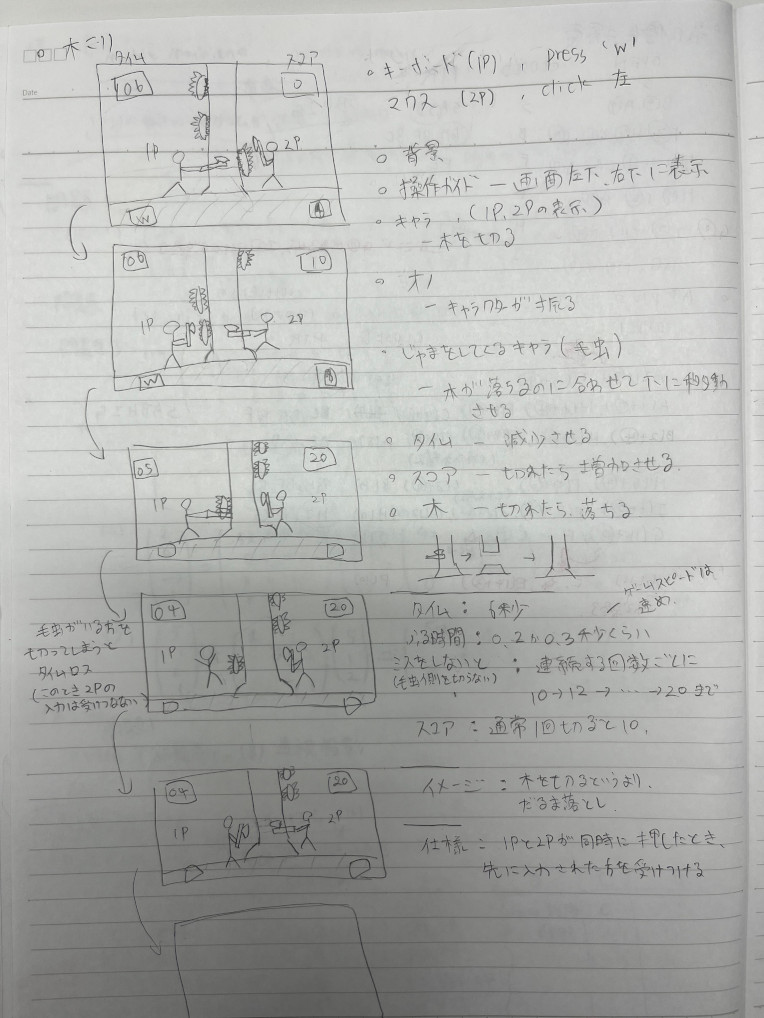 木こり
Date
タイム
スコア
06
0
1P
2P
W
06
10
1P
2P
W
05
20
1P
2P
04
20
1P
2P
毛虫がいる方を
切ってしまうと
タイムロス
(このとき2Pの
入力は受けつけない)
04
20
1P
2P
キーボード(1P), press 'W'
マウス (2P), click 左
背景
操作ガイド ー 画面左下、右下に表示
キャラ , (1P, 2Pの表示)
ー 木を切る
オノ
ー キャラクターが振る
じゃまをしてくるキャラ(毛虫)
ー 木が落ちるのに合わせて下に移動
させる
タイム ー 減少させる
スコア ー 切れたら増加させる.
木 ー 切れたら落ちる
タイム : 6秒
ゲームスピードは
速め.
ふる時間 : 0.2か0.3秒くらい
ミスをしないと : 連続する回数ごとに
(毛虫側を切らない)
10→12→ … →20まで
スコア : 通常1回切るごと10.
イメージ : 木を切るというより,
だるま落とし.
仕様 : 1Pと2Pが同時に押したとき、
先に入力された方を受けつける